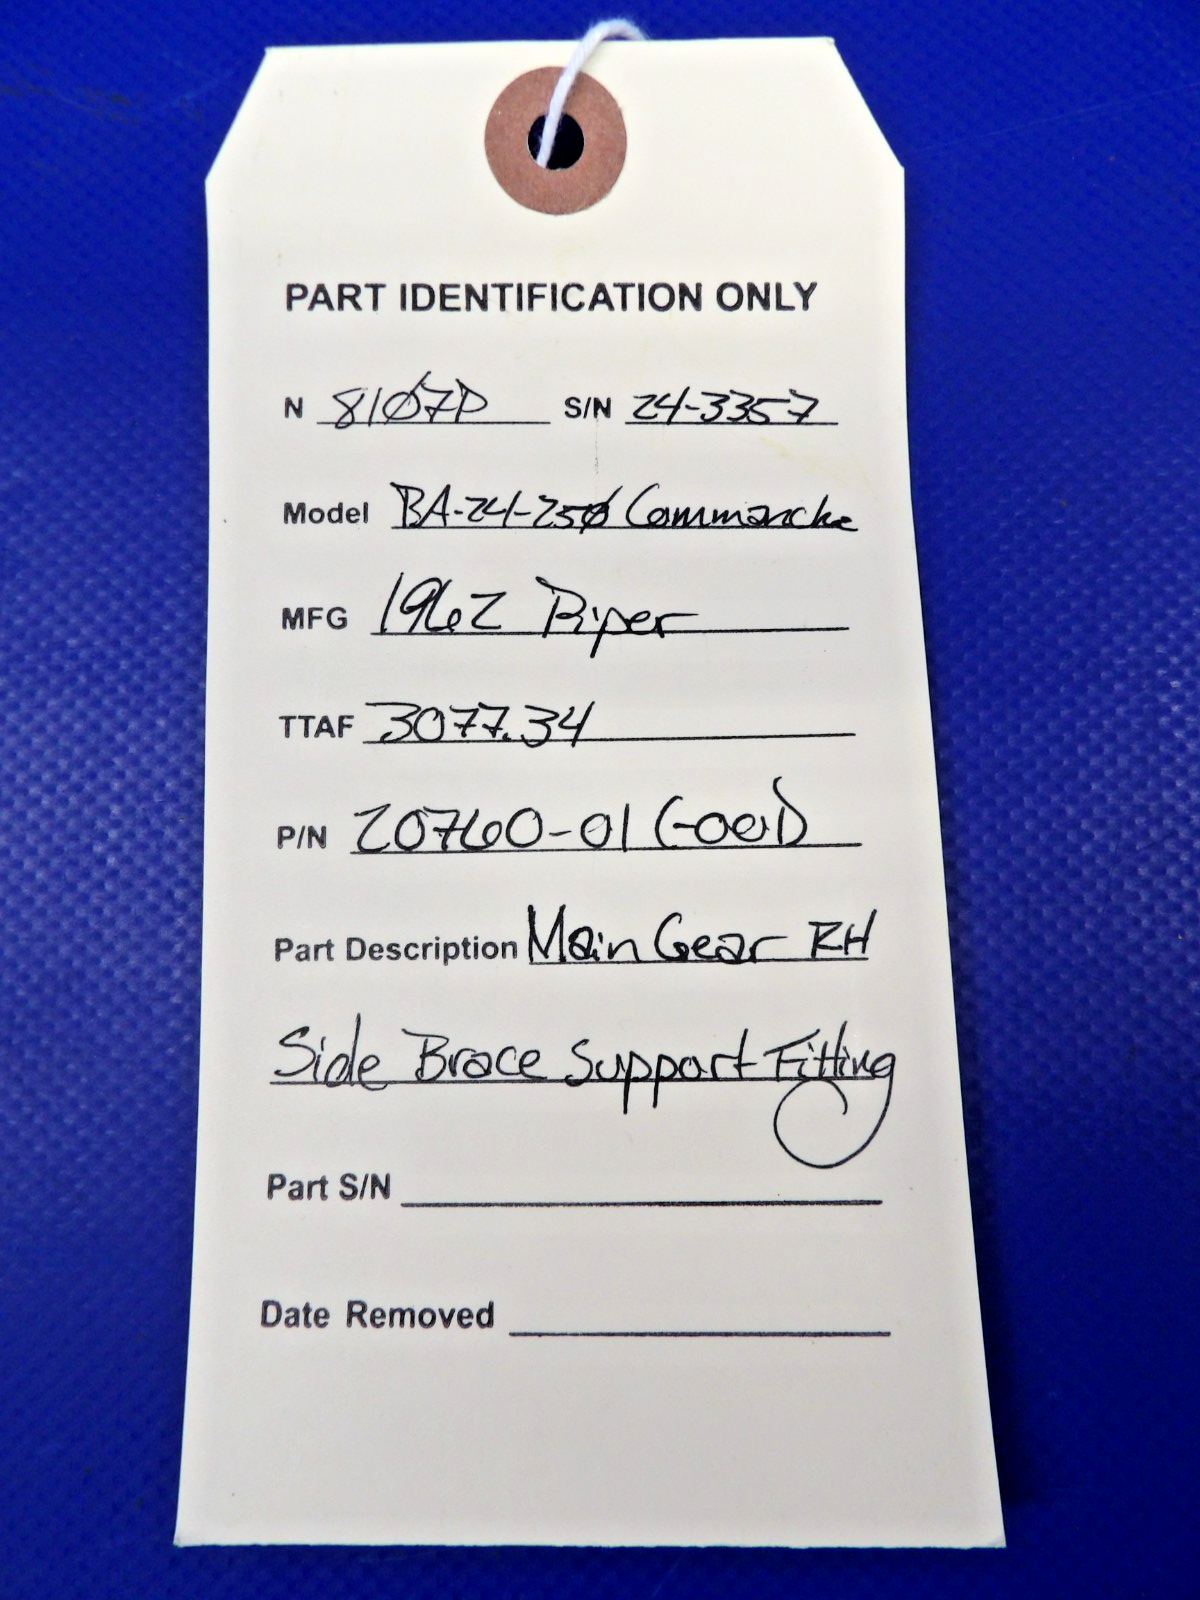 PART IDENTIFICATION ONLY
N 8107P S/N 24-3357
Model PA-24-250 Commanche
MFG 1962 Piper
TTAF 3077.34
P/N 20760-01 GOOD
Part Description Main Gear RH
Side Brace Support Fitting
Part S/N
Date Removed